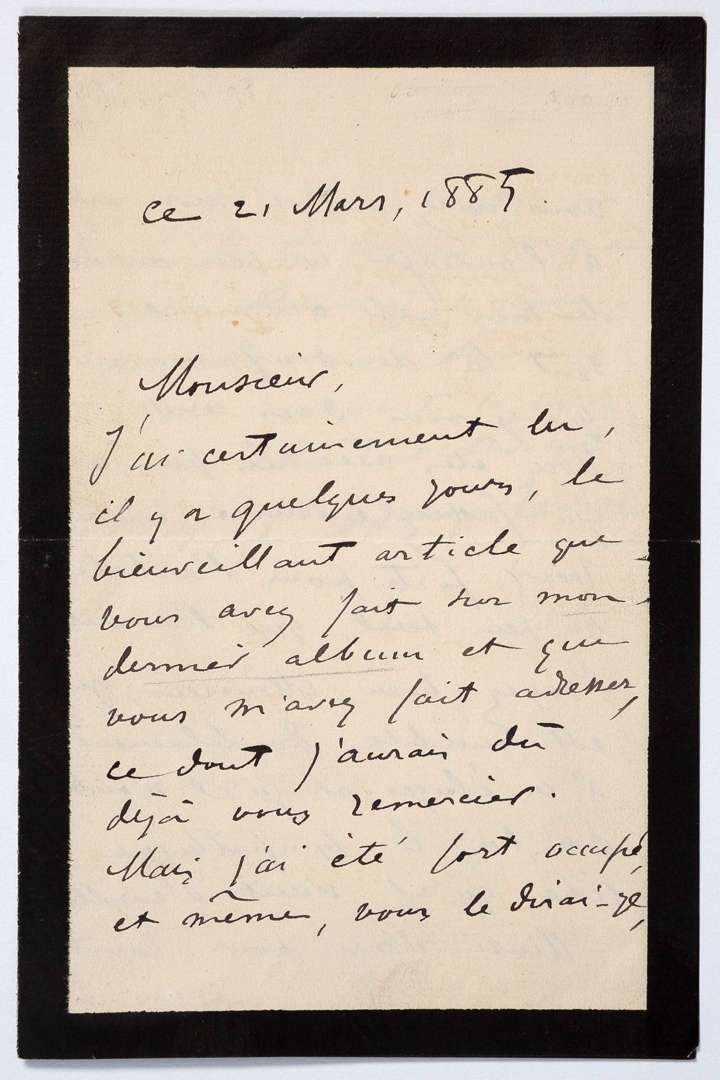 ce 21 Mars, 1885.
Monsieur,
J'ai certainement lu,
il y a quelques jours, le
bienveillant article que
vous avez fait sur mon
dernier album et que
vous m'avez fait adresser,
ce dont j'aurais dû
déjà vous remercier.
Mais j'ai été fort occupé,
et même, vous le dirai-je,